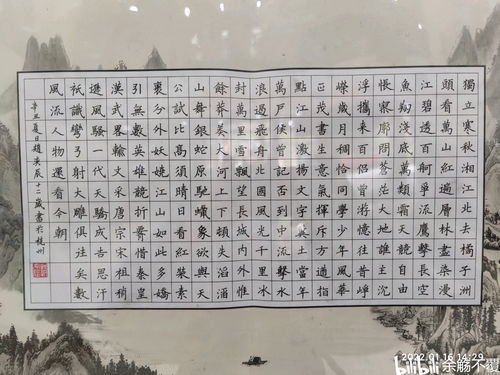 獨立寒秋湘江北去橘子洲
頭看萬山紅遍層林盡染漫
江碧透百舸爭流鷹擊長空
魚翔淺底萬類霜天競自由
悵寥廓問蒼茫大地誰主沉
浮攜來百侶曾游憶往昔崢
嶸歲月稠恰同學少年風華
正茂書生意氣揮斥方遒指
點江山激揚文字糞土當年
萬戶侯曾記否到中流擊水
浪遏飛舟北國風光千里冰
封萬里雪飄望長城內外惟
餘莽莽大河上下頓失滔滔
山舞銀蛇原馳蠟象欲與天
公試比高須晴日看紅裝素
裹分外妖嬈江山如此多嬌
引無數英雄競折腰惜秦皇
漢武畧輸文采唐宗宋祖稍
遜風騷一代天驕成吉思汗
衹識彎弓射大雕俱往矣數
風流人物還看今朝
辛丑夏日趙辰十二歲書於杭州
2022.01.16 14:29
bilibili 余觞不覆